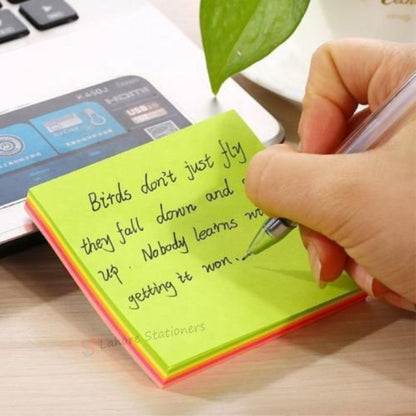 K450J
HDMI
USB
Birds don't just fly
they fall down and
up. Nobody learns w
getting it won..
Lahore Stationers